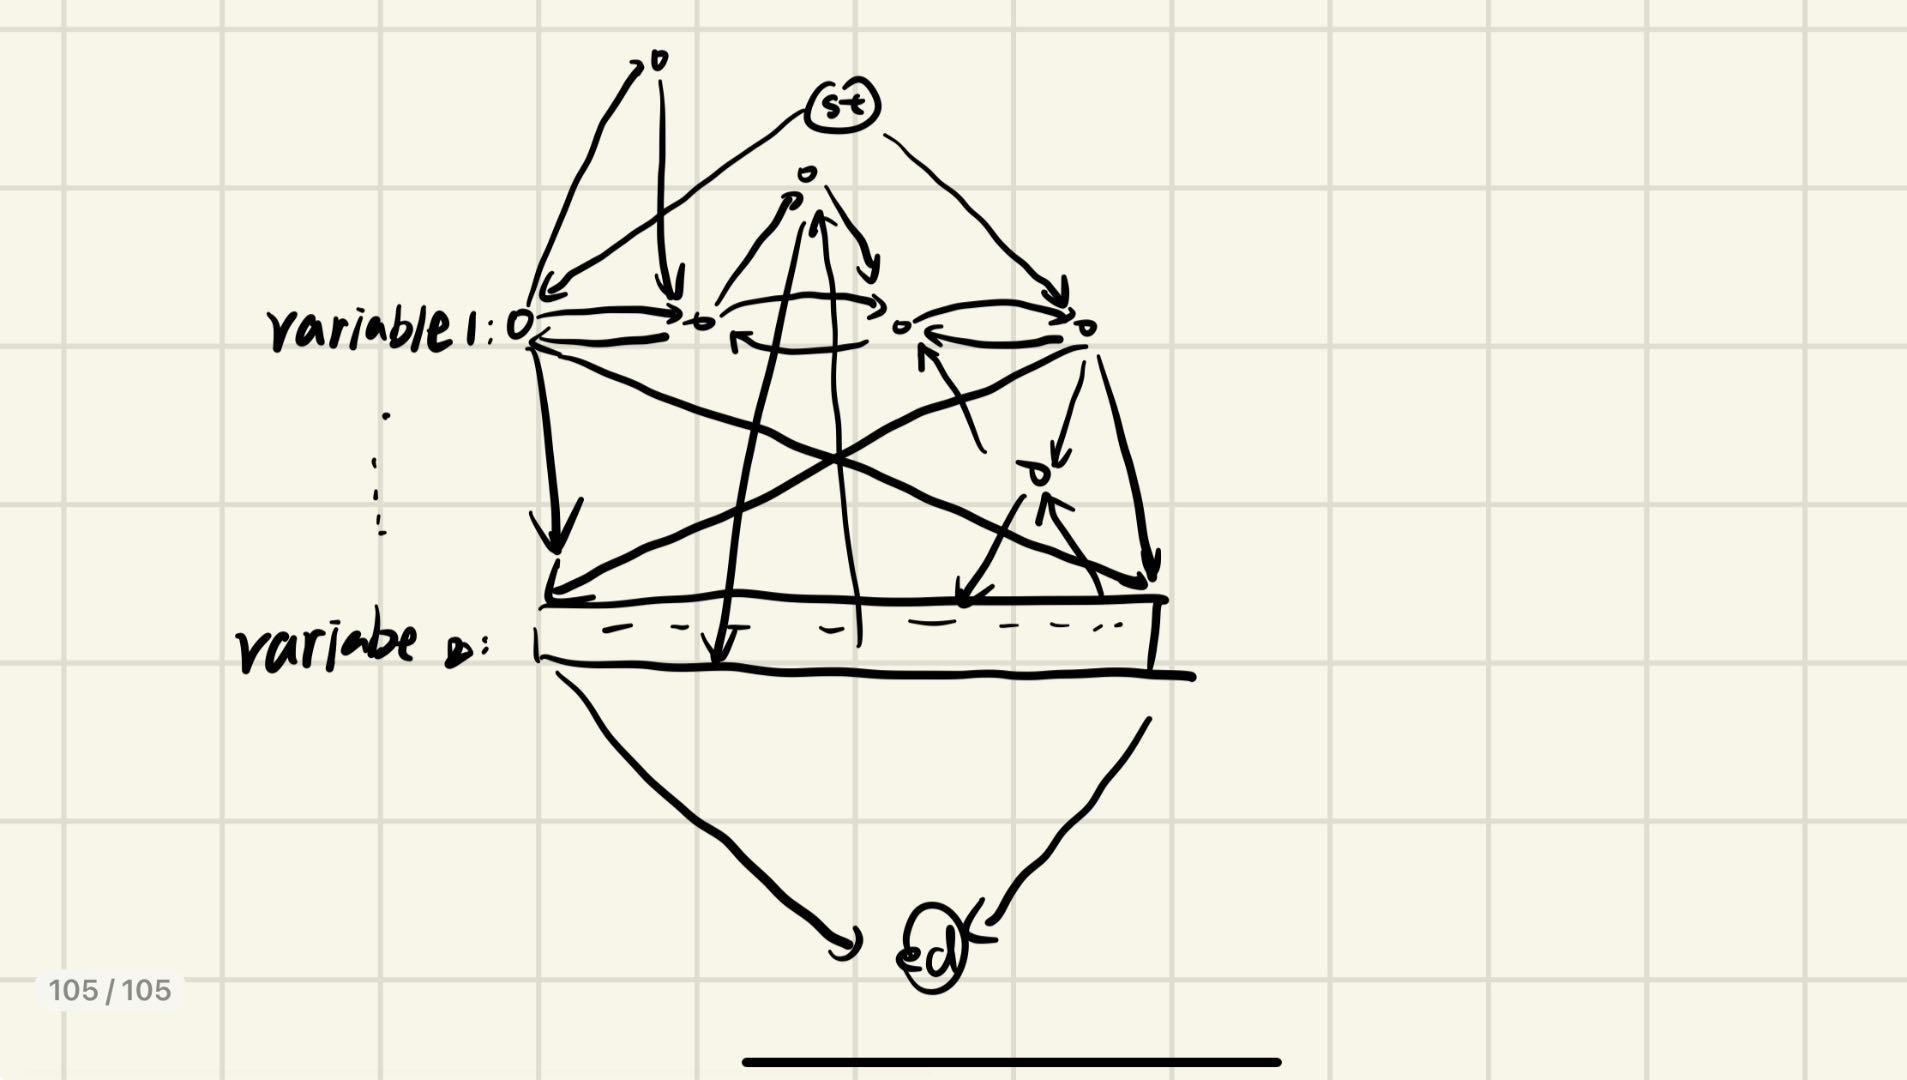 st
variable 1:
variabe n:
ed
105 / 105